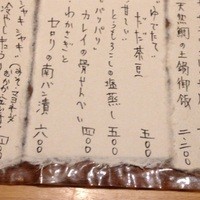 天然鯛の土鍋御飯 二、二〇〇
ゆでたて
だだ茶豆 五〇〇
とうもろこしの塩蒸し 五〇〇
パリパリ
カレイの骨せんべい 四〇〇
わかさぎと
セロリの南バン漬 六〇〇
シャキシャキ